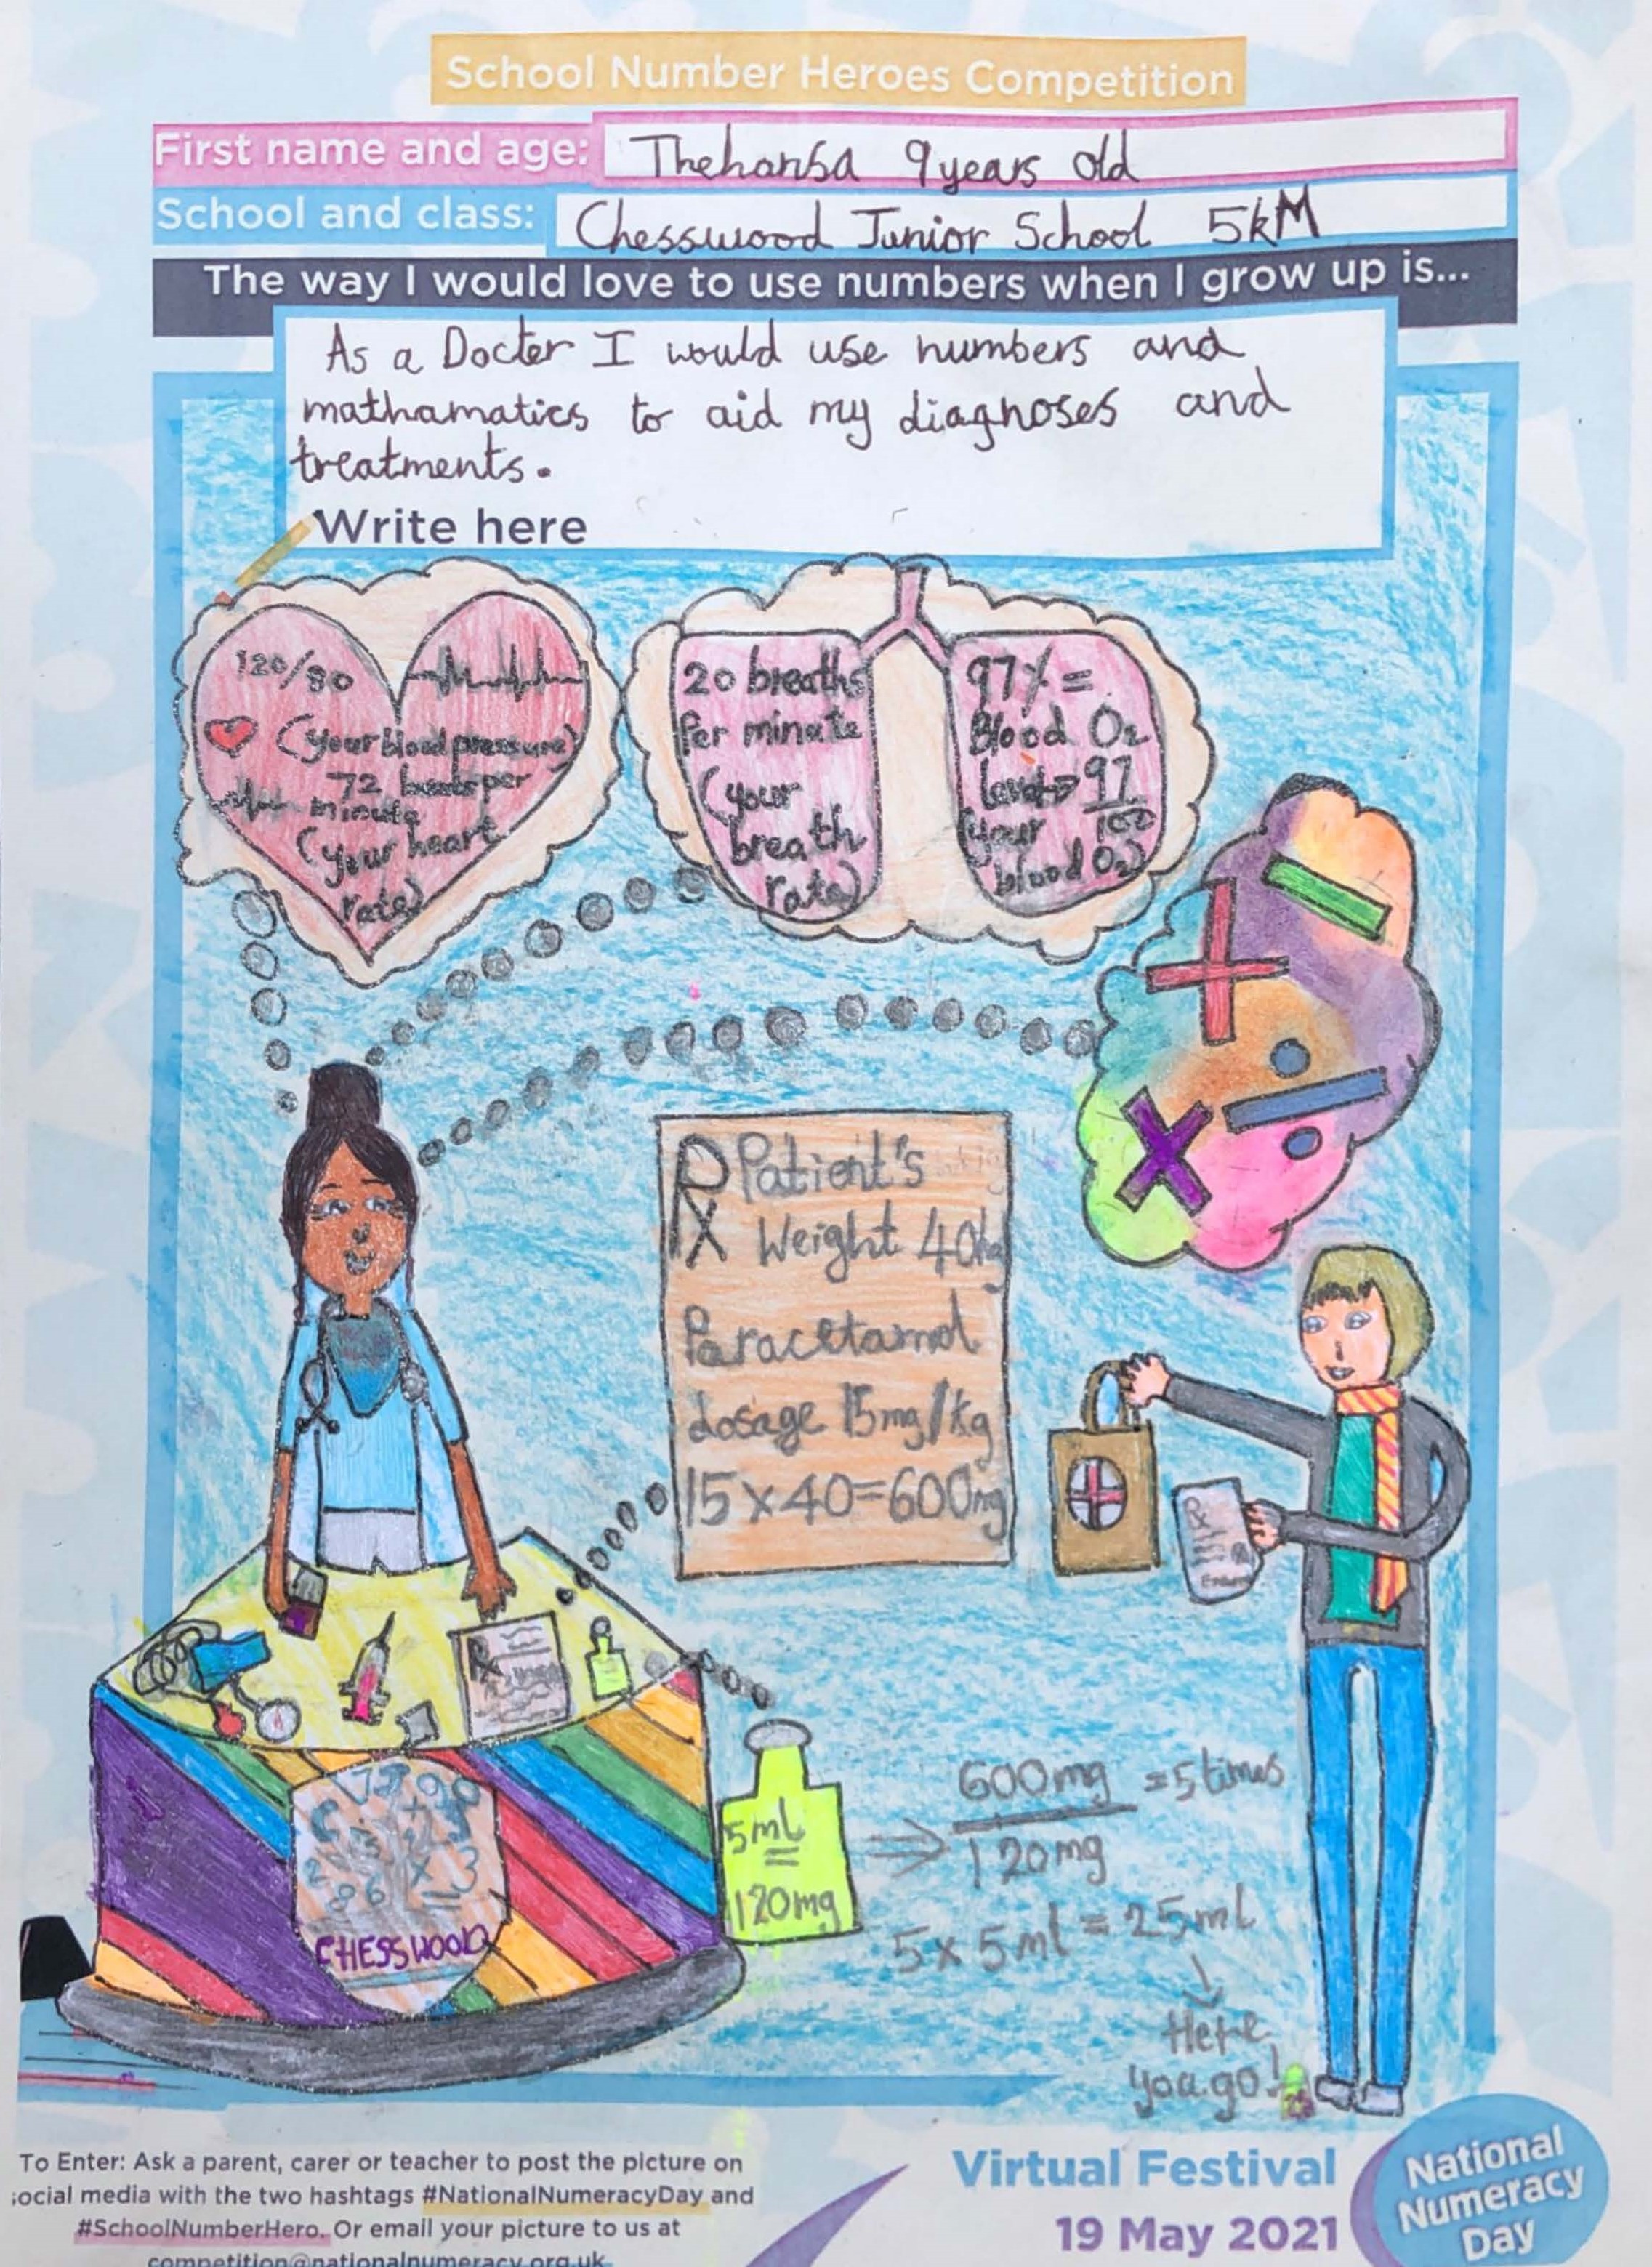 School Number Heroes Competition
First name and age: Thehansa 9 years old
School and class: Chesswood Junior School 5KM
The way I would love to use numbers when I grow up is...
As a Docter I would use numbers and
mathamatics to aid my diagnoses and
treatments.
Write here
120/80
(your blood pressure)
72 beats per
minute
(your heart
rate)
20 breaths
Per minute
(your
breath
rate)
97% =
Blood O2
level → 97/100
(your
blood O2)
+ − ÷ ×
Rx Patient's
Weight 40kg
Paracetamol
dosage 15mg/kg
15 x 40 = 600mg
Rx
Rx
5ml
=
120mg
⇒ 600mg = 5 times
120mg
5 x 5ml = 25ml
↓
Here
you go!
CHESSWOOD
To Enter: Ask a parent, carer or teacher to post the picture on
social media with the two hashtags #NationalNumeracyDay and
#SchoolNumberHero. Or email your picture to us at
competition@nationalnumeracy.org.uk
Virtual Festival
19 May 2021
National
Numeracy
Day